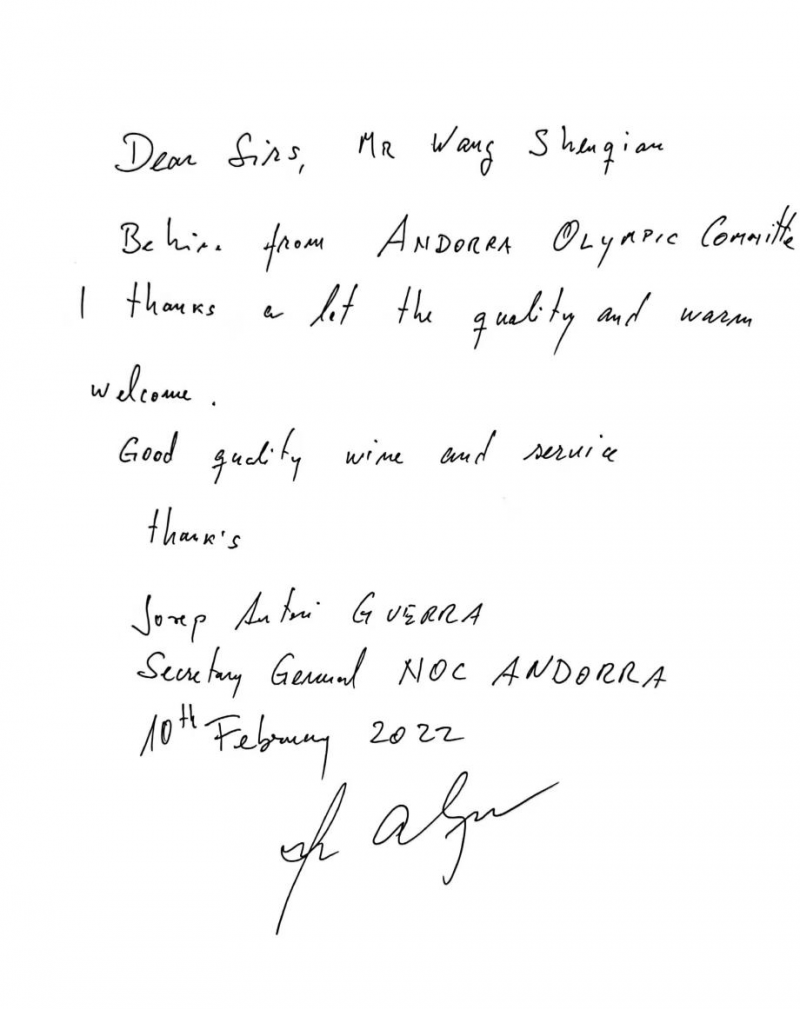 Dear Sirs, MR Wang Shenqian
from ANDORRA OLYMPIC Committe
I thanks a lot the quality and warm
welcome.
Good quality wine and service
thank's
Josep Antoni GUERRA
Secretary General NOC ANDORRA
10th February 2022